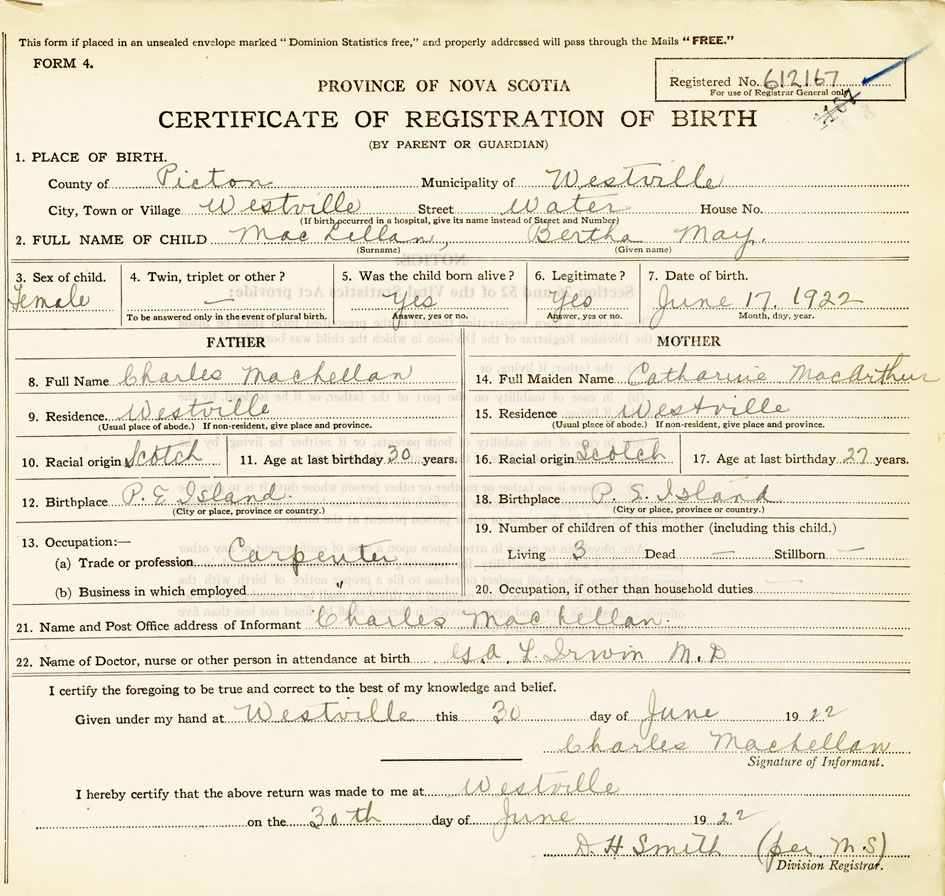 This form if placed in an unsealed envelope marked "Dominion Statistics free," and properly addressed will pass through the Mails "FREE."
FORM 4.
Registered No. 612167
For use of Registrar General only
PROVINCE OF NOVA SCOTIA
CERTIFICATE OF REGISTRATION OF BIRTH
(BY PARENT OR GUARDIAN)
1. PLACE OF BIRTH.
County of Picton Municipality of Westville
City, Town or Village Westville Street Water House No.
(If birth occurred in a hospital, give its name instead of Street and Number)
2. FULL NAME OF CHILD MacLellan, Bertha May.
(Surname) (Given name)
3. Sex of child. 4. Twin, triplet or other? 5. Was the child born alive? 6. Legitimate? 7. Date of birth.
Female — Yes Yes June 17. 1922
To be answered only in the event of plural birth. Answer, yes or no. Answer, yes or no. Month, day, year.
FATHER MOTHER
8. Full Name Charles MacLellan 14. Full Maiden Name Catharine MacArthur
9. Residence Westville 15. Residence Westville
(Usual place of abode.) If non-resident, give place and province. (Usual place of abode.) If non-resident, give place and province.
10. Racial origin Scotch 11. Age at last birthday 30 years. 16. Racial origin Scotch 17. Age at last birthday 27 years.
12. Birthplace P. E Island. 18. Birthplace P. E. Island
(City or place, province or country.) (City or place, province or country.)
19. Number of children of this mother (including this child.)
13. Occupation:—
(a) Trade or profession Carpenter Living 3 Dead — Stillborn —
(b) Business in which employed " 20. Occupation, if other than household duties —
21. Name and Post Office address of Informant Charles MacLellan.
22. Name of Doctor, nurse or other person in attendance at birth L. Irwin M.D
I certify the foregoing to be true and correct to the best of my knowledge and belief.
Given under my hand at Westville this 30 day of June 1922
Charles MacLellan
Signature of Informant.
I hereby certify that the above return was made to me at Westville
on the 30th day of June 1922
D. H Smith (per M.S)
Division Registrar.